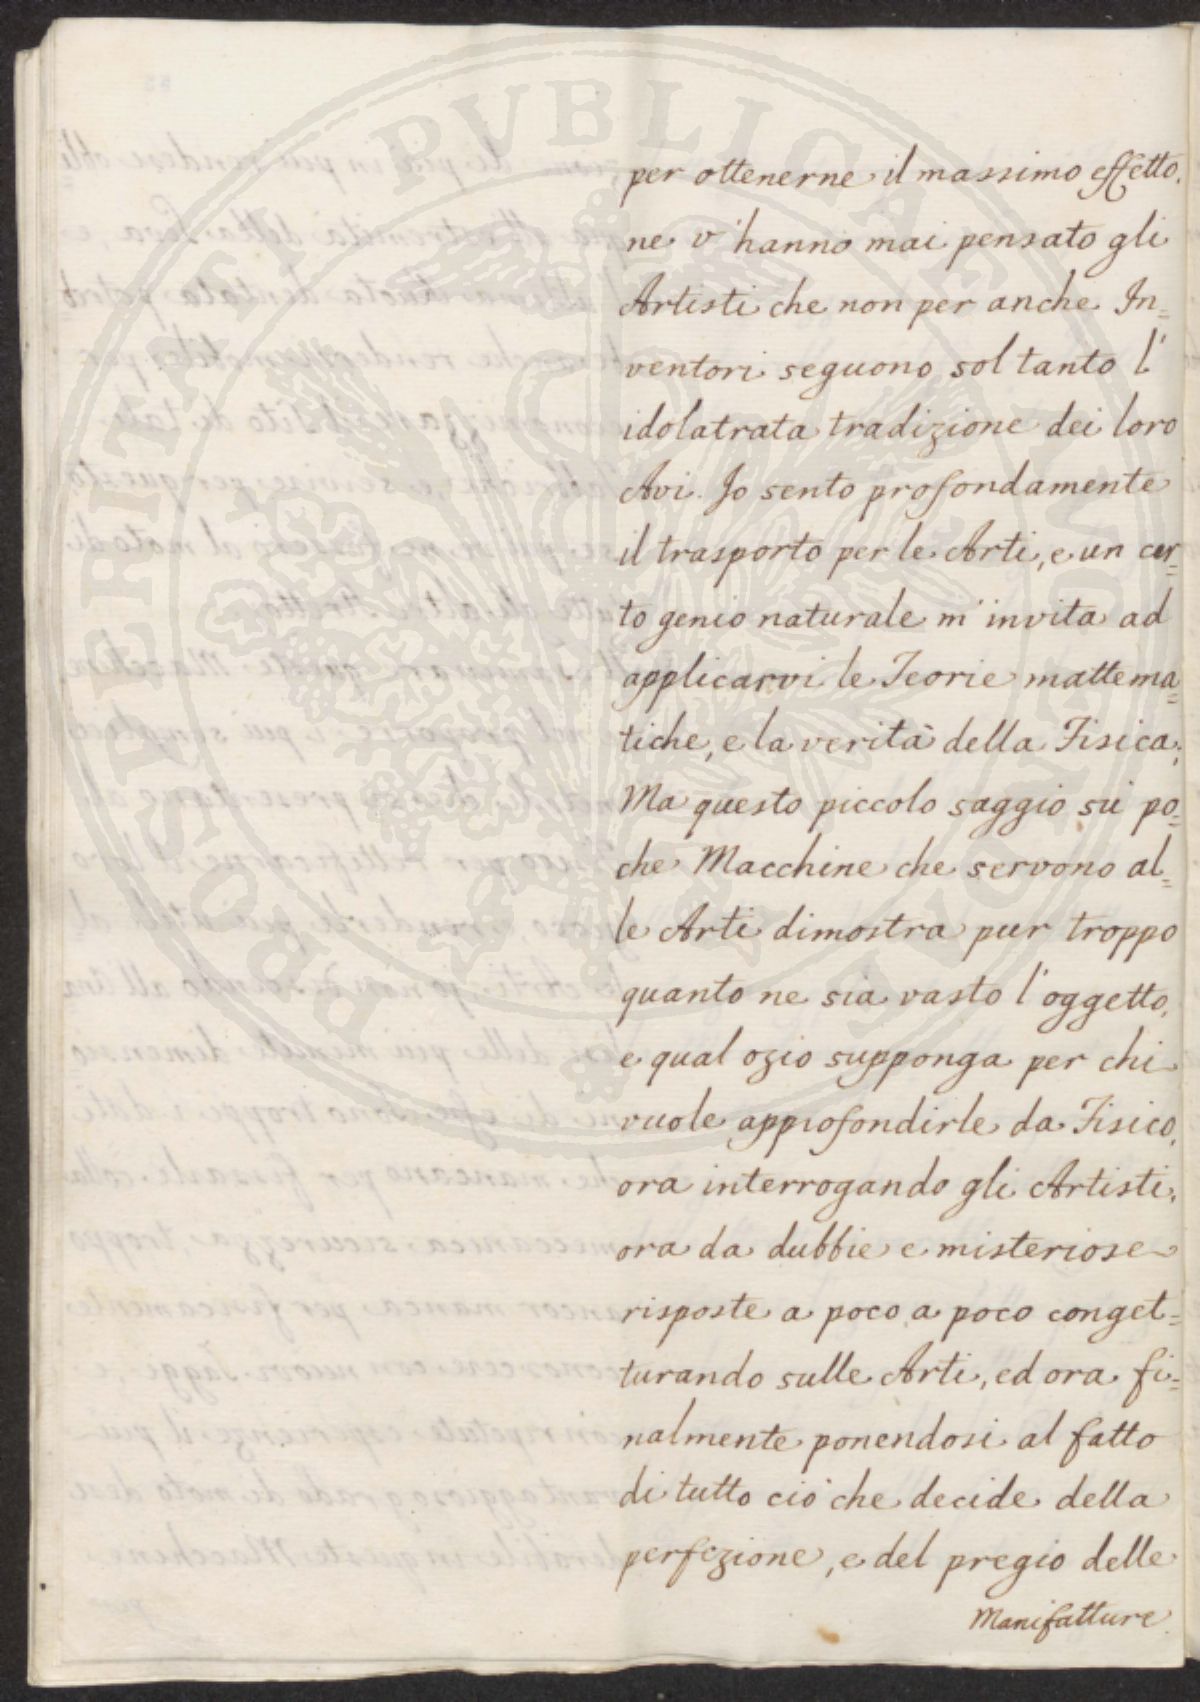 PROSPERITATI PUBLICAE AUGENDAE
per ottenerne il massimo effetto.
ne v'hanno mai pensato gli
Artisti che non per anche In=
ventori seguono soltanto l'
idolatrata tradizione dei loro
Avi. Io sento profondamente
il trasporto per le Arti, e un cer=
to genio naturale m'invita ad
applicarvi le Teorie mattema=
tiche, e la verità della Fisica;
Ma questo piccolo saggio su po=
che Macchine che servono al=
le Arti dimostra pur troppo
quanto ne sia vasto l'oggetto,
e qual ozio supponga per chi
vuole approfondirle da Fisico,
ora interrogando gli Artisti,
ora da dubbie e misteriose
risposte a poco a poco conget=
turando sulle Arti, ed ora fi=
nalmente ponendosi al fatto
di tutto ciò che decide della
perfezione, e del pregio delle
Manifatture